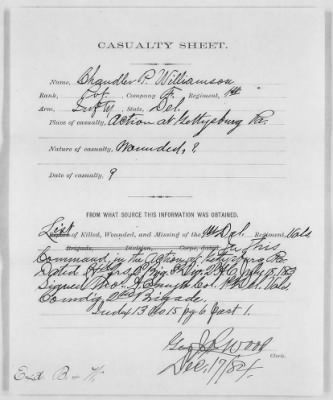 CASUALTY SHEET.
Name, Chandler P. Williamson
Rank, Pvt. Company F, Regiment, 1st
Arm, Infty, State, Del.
Place of casualty, Action at Gettysburg Pa.
Nature of casualty, Wounded, ?
Date of casualty, ?
FROM WHAT SOURCE THIS INFORMATION WAS OBTAINED.
List of Killed, Wounded, and Missing of the 1st Del. Regiment, Vols
Brigade, Division, Corps, in this
Command in the Action of Gettysburg Pa
Dated Hdqrs 2" Brig 3" Div 2" A.C. July 15, 1863
Signed Thos. A. Smyth Col. 1st Del. Vols
Comd'g 2nd Brigade.
13 No 15 pg 6 part 1.
Wood
Clerk.
Dec. 17/84.
Ex'd B. &